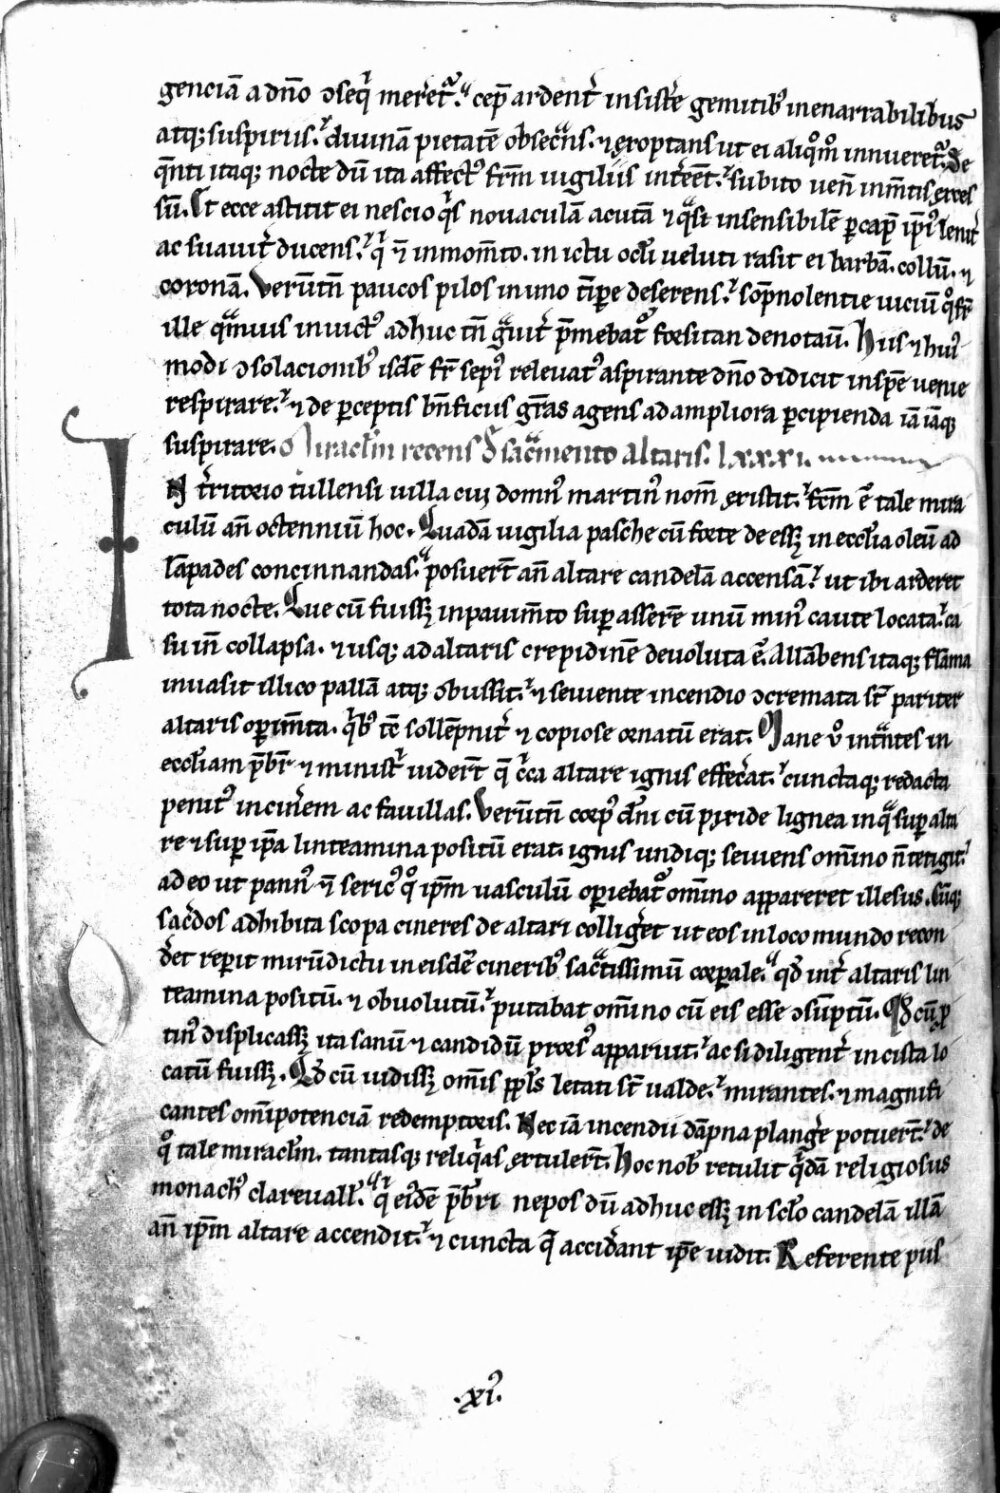 genciā a dn̄o ꝯseqͥ mereret᷑. cep̄ ardent̓ insist̓e gemitibꝰ inenarrabilibus
atqꝫ suspiriis. diuinā pietatē obsecᷓns. ⁊ exoptans ut ei aliqͦmͦ innueret᷑. Se
qn̄ti itaqꝫ nocte dū ita affectꝰ frm̄ uigiliis int̓eēt. subito uen̄ inm̄tis exces
sū. Et ecce astitit ei nescio qͥs nouaculā acutā ⁊ qᷓsi insensibilē ꝑ cap̄ ip̄iꝰ lenit̓
ac suauit̓ ducens. qͥ ⁊ in mom̄to. in ictu ocl̓i ueluti rasit ei barbā. collū. ⁊
coronā. Verūtn̄ paucos pilos in uno tēꝑe deserens. sop̄nolentie uiciū qͦ fr̄
ille qᷓmuis inuictꝰ adhuc tn̄ gᷓuit̓ p̄mebat᷑ forsitan denotauꝰ. Hiis ⁊ huiꝰ
modi ꝯsolacionibꝰ isdē fr̄ sepiꝰ releuatꝰ aspirante dn̄o didicit in spē uenie
respirare. ⁊ de ꝑceptis bn̄ficiis gr̄as agens ad ampliora ꝑcipienda iā iāqꝫ
suspirare. Miracl̓m recens de sacᷓmento altaris. lxxxi.
IN t̓ritorio tullensi uilla cui domnꝰ martinꝰ nom̄ existit. fcm̄ ē tale mira
culū an̄ octenniū hoc. Quadā uigilia pasche cū forte deessꝫ in eccl̓ia oleū ad
lāpades concinnandas. posuer̄t an̄ altare candelā accensā. ut ibi arderet
tota nocte. Que cū fuissꝫ in pauim̄to suꝑ asserē unū minꝰ caute locata. ca
su in̄ collapsa. ⁊ usqꝫ ad altaris crepidinē deuoluta ē. Allābens itaqꝫ flāma
inuasit illico pallā atqꝫ ꝯbussit. ⁊ seuiente incendio ꝯcremata st̄ pariter
altaris oꝑim̄ta. qͥbꝰ tc̄ sollēpnit̓ ⁊ copiose ornatū erat. Mane ū intᷓntes in
eccl̓iam p̄br̄i ⁊ ministͥ uider̄t qd̄ cͥca altare ignis effec̓at. cunctaqꝫ redacta
penitꝰ in cin̓em ac fauillas. Verūtn̄ corpꝰ dn̄i cū pixide lignea in qᷓ suꝑ alta
re ⁊ suꝑ ip̄a linteamina positū erat. ignis undiqꝫ seuiens om̄ino n̄ tetigit.
adeo ut pannꝰ ⁊ sericꝰ qͦ ip̄m uasculū oꝑiebat᷑ om̄ino appareret illesus. Cūqꝫ
sac̓dos adhibita scopa cineres de altari collig̓et ut eos in loco mundo recon
d̓et reꝑit mirū dictu in eisdē cineribꝰ sacᷓtissimū corporale. qd̓ int̓ altaris lin
teamina positū. ⁊ obuolutū. putabat om̄ino cū eis esse ꝯsūptū. Qd̓ cū ꝓ
tinꝰ displicassꝫ ita sanū ⁊ candidū prorsꝰ apparuit. ac si diligent̓ in cista lo
catū fuissꝫ. Qd̓ cū uidissꝫ om̄is ppl̓s letati st̄ ualde. mirantes. ⁊ magnifi
cantes om̄ipotenciā redemptoris. Nec iā incendii dāpna plang̓e potuer̄t. de
qͦ tale miracl̓m. tantasqꝫ reliqͥas extuler̄t. Hoc nob̓ retulit qͥdā religiosus
monachꝰ clareuall̓. qͥ eiꝰdē p̄br̄i nepos dū adhuc essꝫ in scl̓o candelā illā
an̄ ip̄m altare accendit. ⁊ cuncta q̄ accid̓ant ip̄e uidit. Referente piis
.xi.